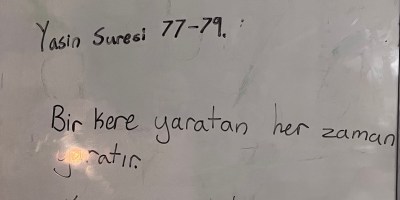 Yasin Suresi 77-79. :
Bir kere yaratan her zaman
yaratır.